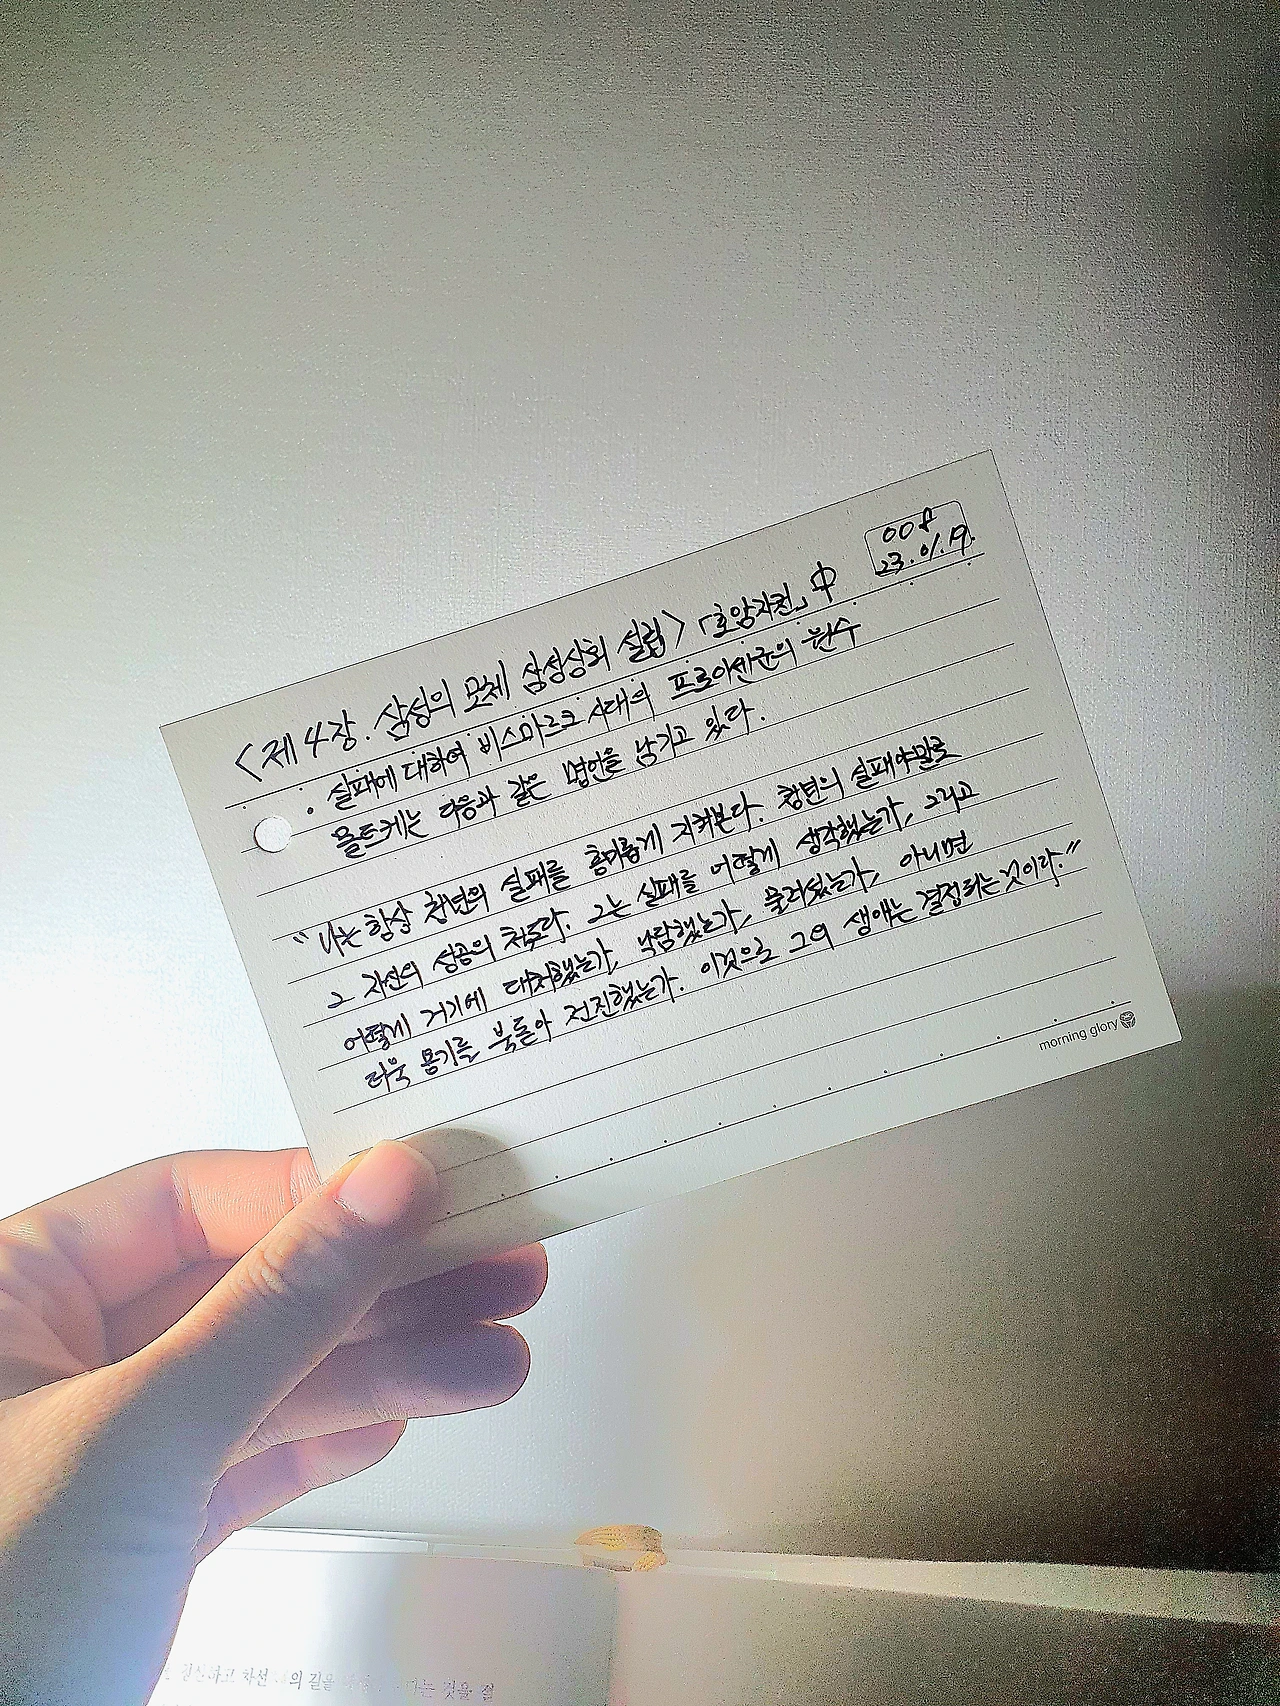 23.01.19.
<제 4장. 삼성의 모체 삼성상회 설립> 「호암자전」 中
· 실패에 대하여 비스마르크 시대의 프로이센군의 원수
몰트케는 다음과 같은 명언을 남기고 있다.
"나는 항상 청년의 실패를 흥미롭게 지켜본다. 청년의 실패야말로
그 자신의 성공의 척도다. 그는 실패를 어떻게 생각했는가, 그리고
어떻게 거기에 대처했는가, 낙담했는가, 물러섰는가, 아니면
더욱 용기를 북돋아 전진했는가. 이것으로 그의 생애는 결정되는 것이다."
morning glory
고 차선 의 길을 는 것을 절